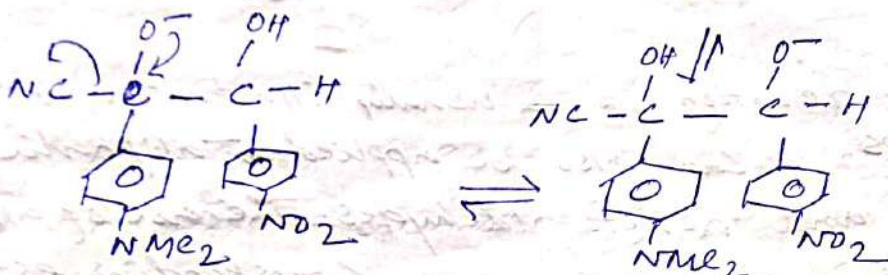 O⁻ OH
NC - C - C - H
NMe₂ NO₂
⇌
OH O⁻
NC - C - C - H
NMe₂ NO₂